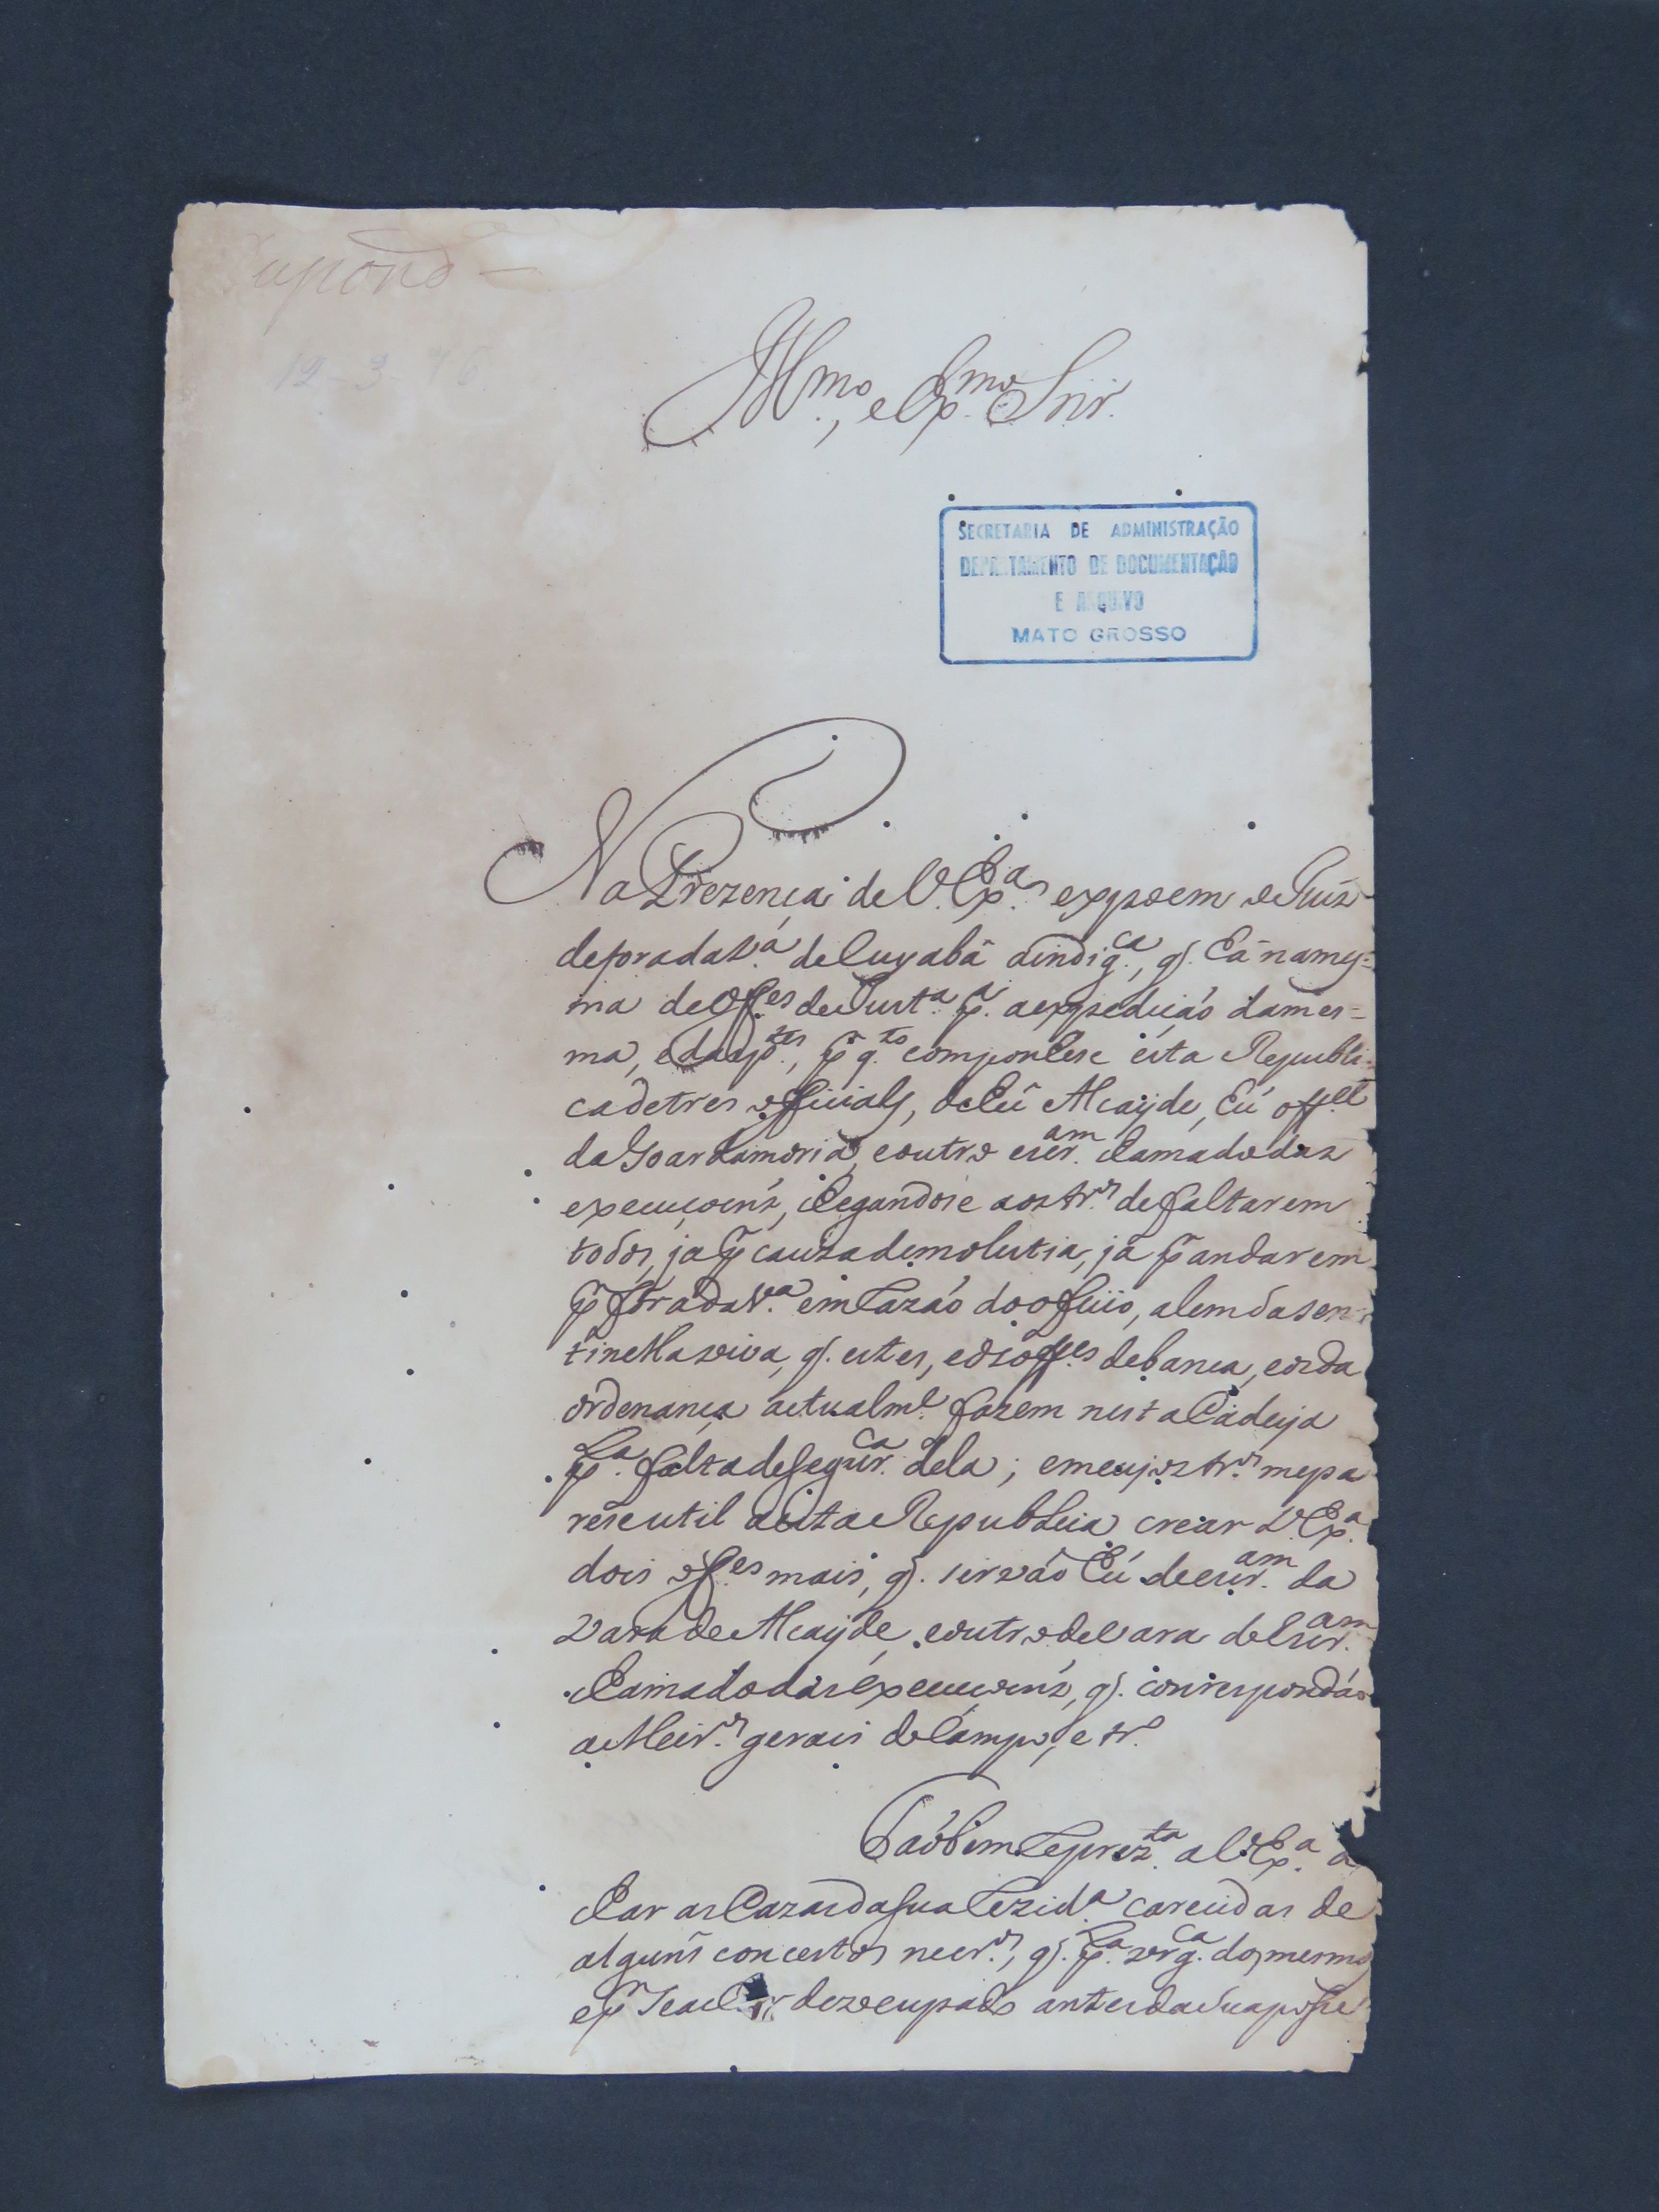 Respond –
12-3-
Illmo., e Exmo. Snr.
SECRETARIA DE ADMINISTRAÇÃO
DEPARTAMENTO DE DOCUMENTAÇÃO
E ARQUIVO
MATO GROSSO
Na Prezença de V. Exas. expoem o Juis
de fora da Va. de Cuyabá a indigca., q. há na mes=
ma de Offes. de Justa. pa. a expedição da mes=
ma, e das ptes., p qto. compondose ésta Republi=
ca de tres officiais, de hú Alcayde, hú offel
da Goardamoria, e outro escram. chamado das
execuçoens, chegandose aos tros. de faltarem
todos, ja p cauza de molestia, já p andarem
p fóra da Va. em razaó do officio, alem da sen=
tinella viva, q. estes, e os offes. de banca, e os da
ordenança actualme. fazem nesta Cadeya
pla. falta de Segurca. dela; em cujos tros. me pa
rese util a ésta Republica crear V. Exa.
dois offes. mais, q. sirváo hú de escram. da
Vara de Alcayde, e outro de vara de Escram.
chamado das Execuçoens, q. correspondáo
a Meiros. gerais do Campo, e tr.
Taóbem reprezta. a V. Exa. a
char as Cazas da sua rezida. carecidas de
alguns concertos necros., q. pla. urgca. dos mesmos
e pr se dezocupado antes da sua posse